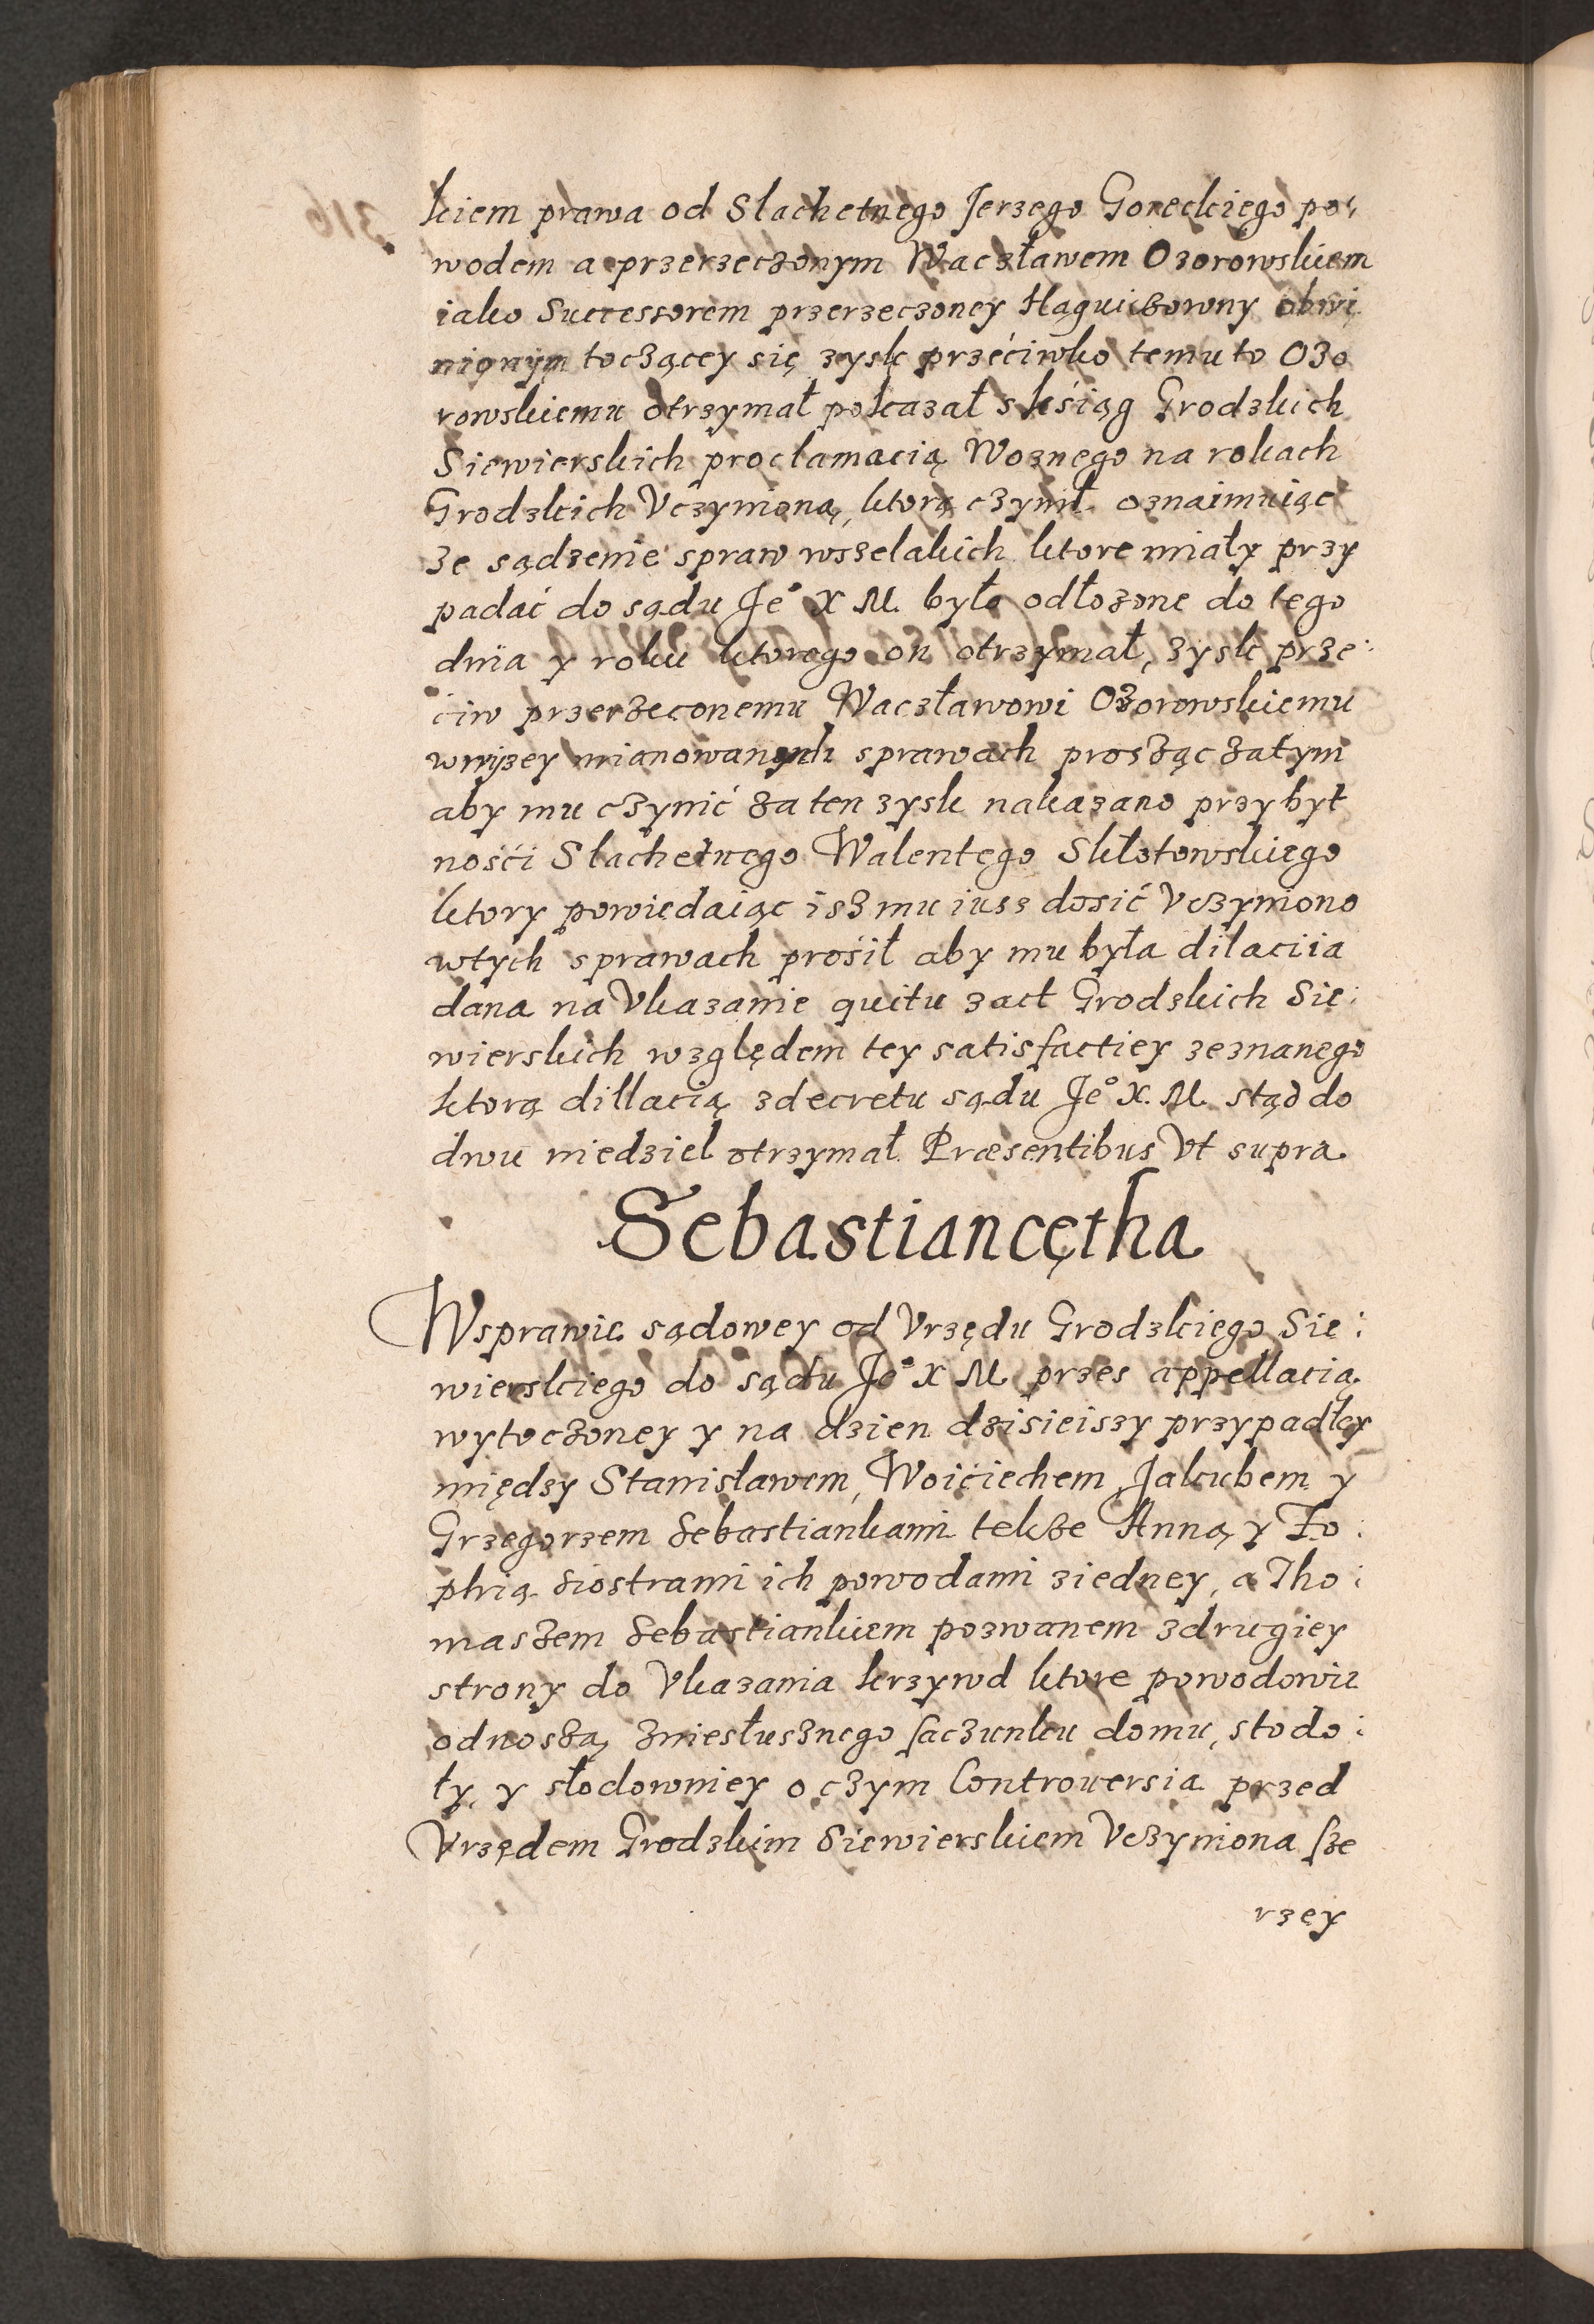 kiem prawa od Slachetnego Jerzego Goreckiego po:
wodem a przerzeczonym Waczławem Ozorowskiem
iako Successorem przerzeczoney Haguiczowny obwi
nionym toczącey się zysk przećiwko temu to Ozo
rowskiemu otrzymał pokazał s kśiąg Grodzkich
Siewierskich proclamacią Woznego na rokach
Grodzkich Vczynioną, ktorą czynił oznaimuiąc
ze sądzenie spraw wszelakich ktore miały przy
padać do sądu Je° X M. było odłozone do tego
dnia y roku ktorego on otrzymał, zysk prze:
ciw przerzeconemu Waczławowi Ozorowskiemu
wwyzey mianowanych sprawach prosząc zatym
aby mu czynić za ten zysk nakazano przy byt
nośći Slachetnego Walentego Skłotowskiego
ktory powiedaiąc isz mu iusz dosić Vczyniono
wtych sprawach prośił aby mu była dilaciia
dana na Vkazanie quitu zact Grodzkich Sie:
wierskich względem tey satisfactiey zeznanego
ktorą dillacią zdecretu sądu Je° X. M. stąd do
dwu niedziel otrzymał. Præsentibus Vt supra.
Sebastiancętha
Wsprawie sądowey od Vrzędu Grodzkiego Sie:
wierskiego do sądu Je° X M przes appellacią
wytoczoney y na dzien dzisieiszy przypadłey
między Stanisławem, Woićiechem, Jakubem y
Grzegorzem Sebastiankami tekze Anną y Zo:
phią siostrami ich powodami ziedney, a Tho:
maszem Sebastiankiem pozwanem zdrugiey
strony do Vkazania krzywd ktore powodowie
odnoszą, zniesłusznego saczunku domu, stodo:
ły, y słodowniey o czym Controuersia przed
Vrzędem Grodzkim Siewierskiem Vczyniona sze
rzey